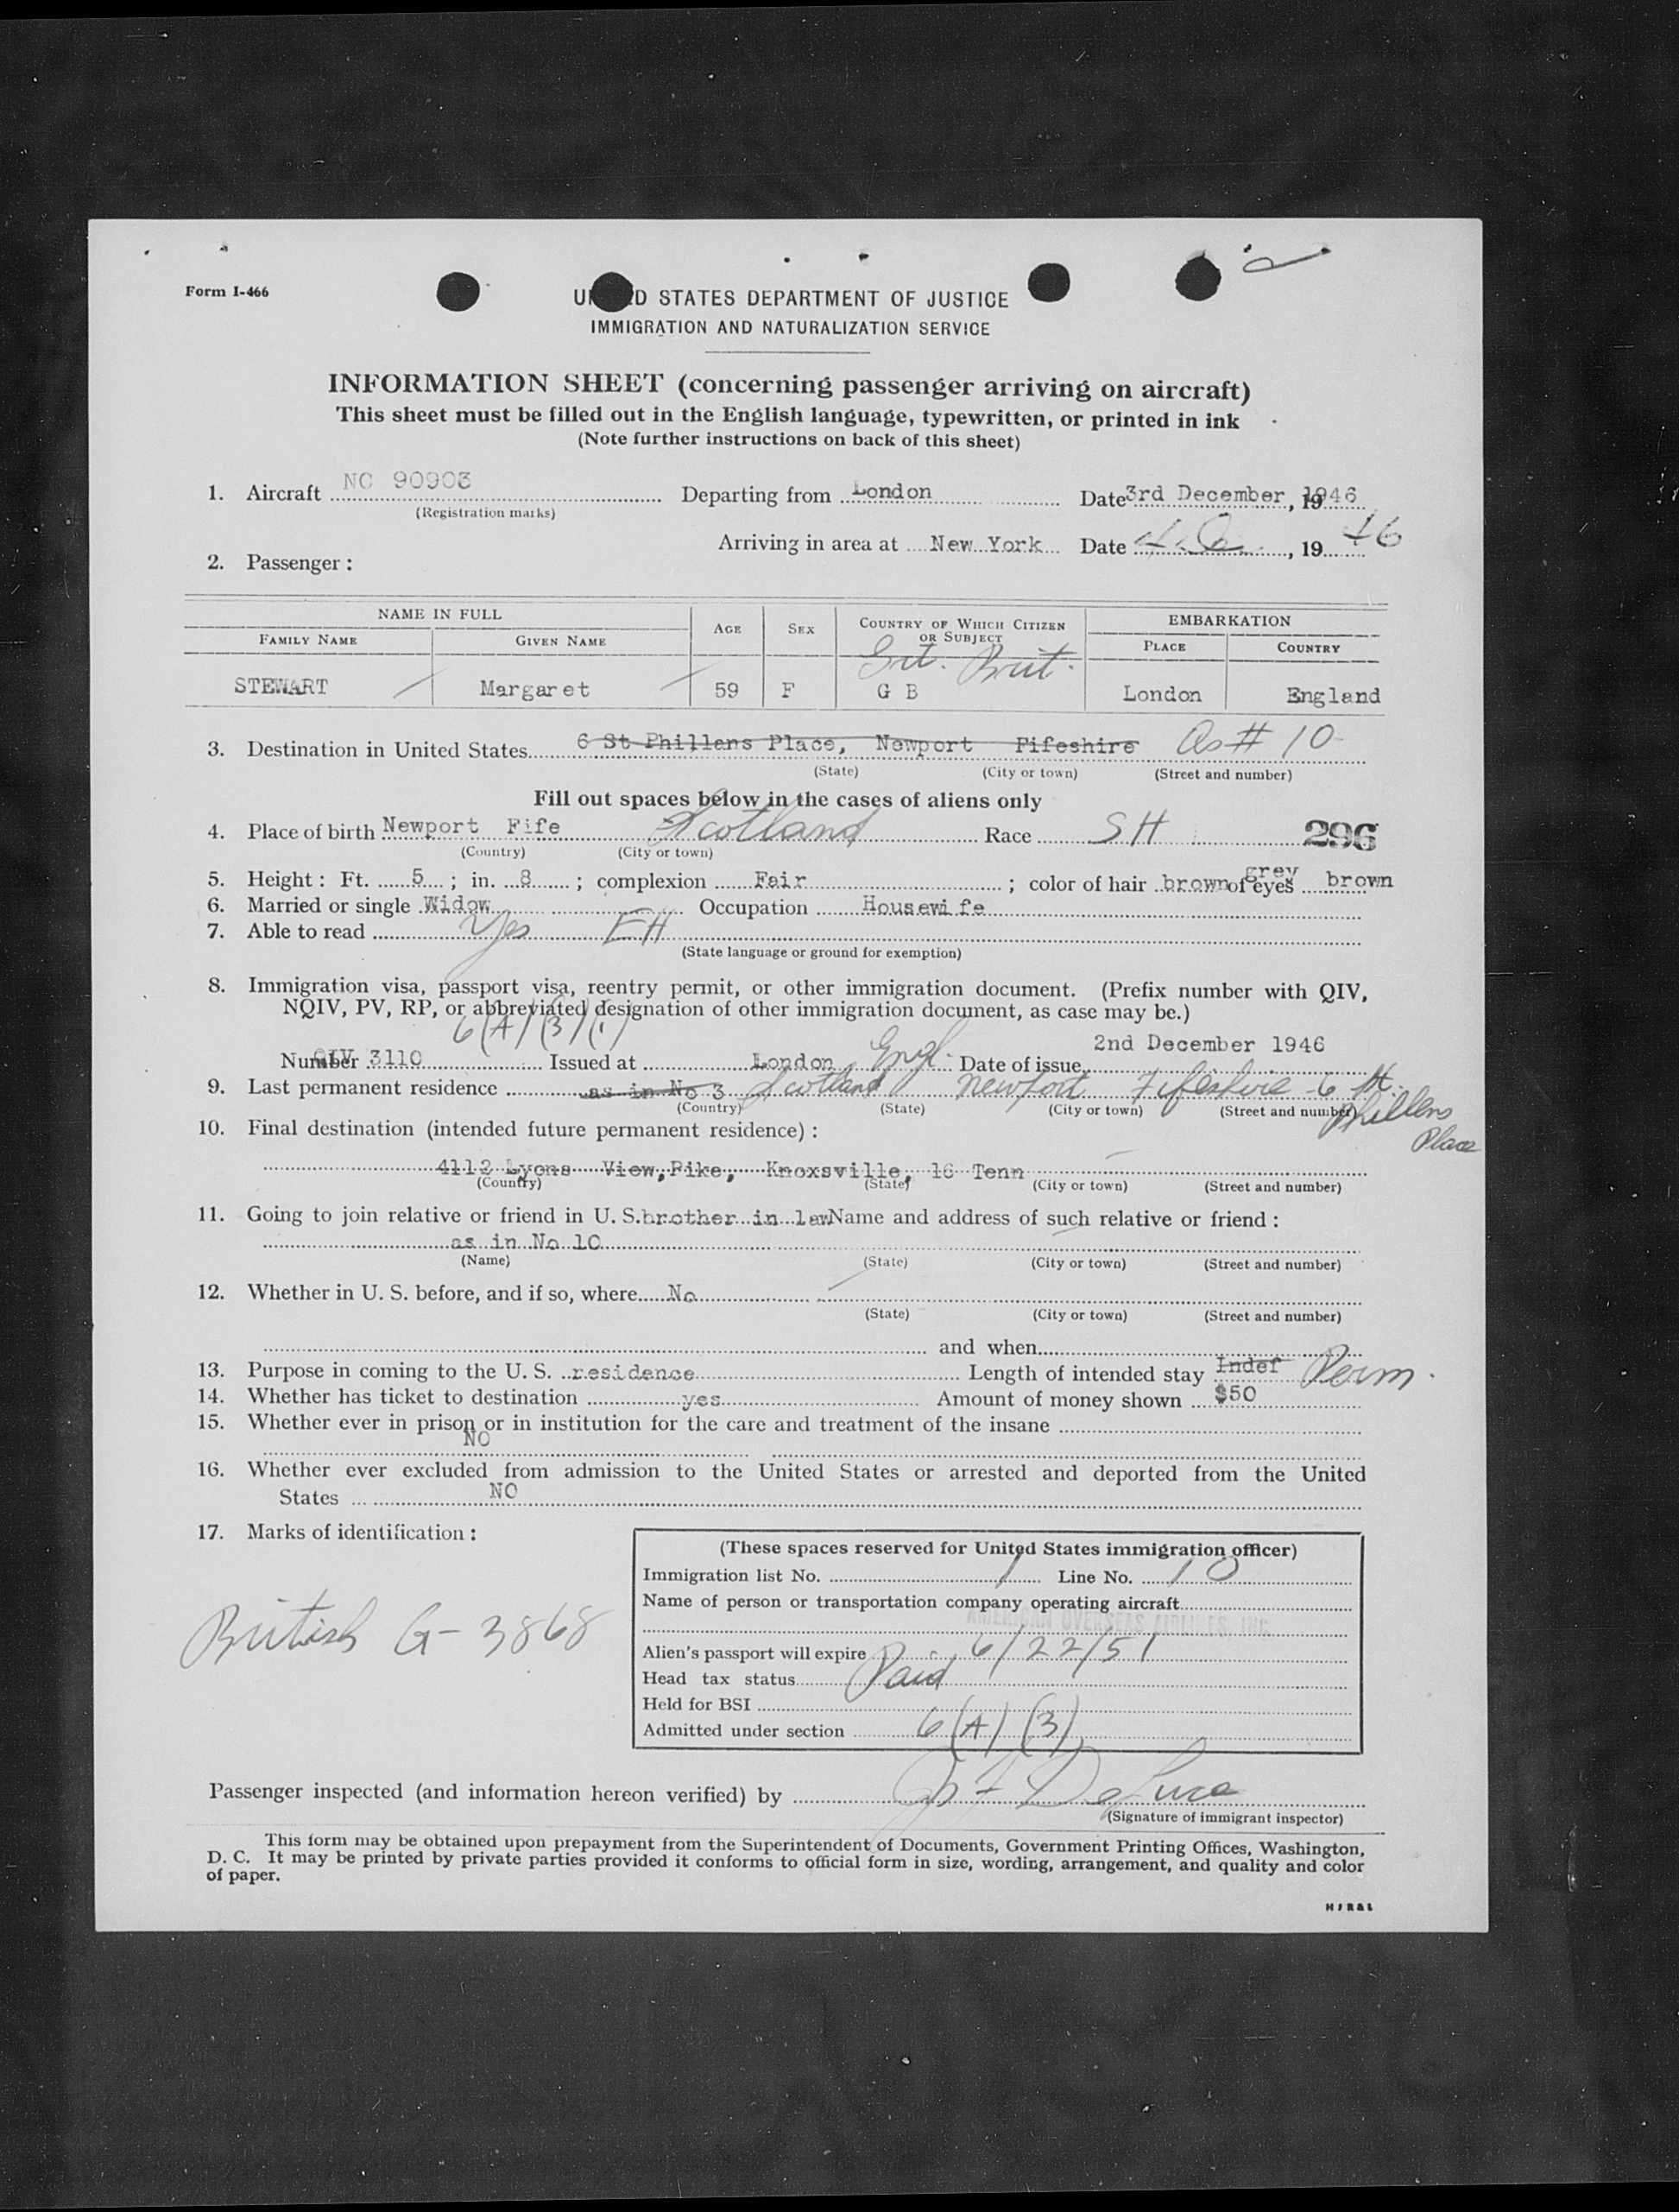 Form I-466
UNITED STATES DEPARTMENT OF JUSTICE
IMMIGRATION AND NATURALIZATION SERVICE
INFORMATION SHEET (concerning passenger arriving on aircraft)
This sheet must be filled out in the English language, typewritten, or printed in ink
(Note further instructions on back of this sheet)
1. Aircraft NC 90903 Departing from London Date 3rd December, 1946
(Registration marks)
Arriving in area at New York Date 19 46
2. Passenger:
NAME IN FULL AGE SEX COUNTRY OF WHICH CITIZEN OR SUBJECT EMBARKATION
FAMILY NAME GIVEN NAME PLACE COUNTRY
Grt. Brit.
STEWART Margaret 59 F G B London England
3. Destination in United States 6 St Phillens Place, Newport Fifeshire As # 10
(State) (City or town) (Street and number)
Fill out spaces below in the cases of aliens only
4. Place of birth Newport Fife Scotland Race SH 296
(Country) (City or town)
5. Height: Ft. 5; in. 8; complexion Fair; color of hair brown grey of eyes brown
6. Married or single Widow Occupation Housewife
7. Able to read Yes EH
(State language or ground for exemption)
8. Immigration visa, passport visa, reentry permit, or other immigration document. (Prefix number with QIV,
NQIV, PV, RP, or abbreviated designation of other immigration document, as case may be.)
6(A)(3)(1)
Number QIV 3110 Issued at London Engl. Date of issue 2nd December 1946
9. Last permanent residence as in No 3 Scotland Newport Fifeshire 6 St. Phillens Place
(Country) (State) (City or town) (Street and number)
10. Final destination (intended future permanent residence):
4112 Lyons View, Pike, Knoxsville, 16 Tenn
(Country) (State) (City or town) (Street and number)
11. Going to join relative or friend in U. S. brother in law Name and address of such relative or friend:
as in No 10
(Name) (State) (City or town) (Street and number)
12. Whether in U. S. before, and if so, where No
(State) (City or town) (Street and number)
and when
13. Purpose in coming to the U. S. residence Length of intended stay Indef Perm.
14. Whether has ticket to destination yes Amount of money shown $50
15. Whether ever in prison or in institution for the care and treatment of the insane
NO
16. Whether ever excluded from admission to the United States or arrested and deported from the United
States NO
17. Marks of identification:
British G-3868
(These spaces reserved for United States immigration officer)
Immigration list No. 1 Line No. 10
Name of person or transportation company operating aircraft
AMERICAN OVERSEAS AIRLINES, INC.
Alien's passport will expire 6/22/51
Head tax status Paid
Held for BSI
Admitted under section 6(A)(3)
Passenger inspected (and information hereon verified) by DeLuca
(Signature of immigrant inspector)
This form may be obtained upon prepayment from the Superintendent of Documents, Government Printing Offices, Washington,
D. C. It may be printed by private parties provided it conforms to official form in size, wording, arrangement, and quality and color
of paper.
HJR&L